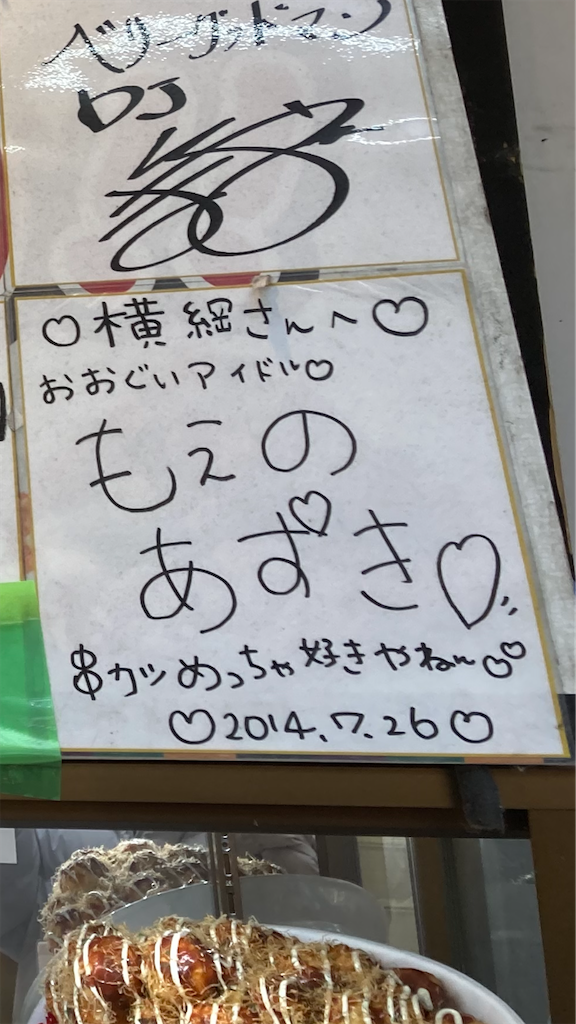 ベリーグッドマン
DJ
♡横綱さんへ♡
おおぐいアイドル♡
もえの
あずき♡
串カツめっちゃ好きやねん♡♡
♡2014.7.26♡